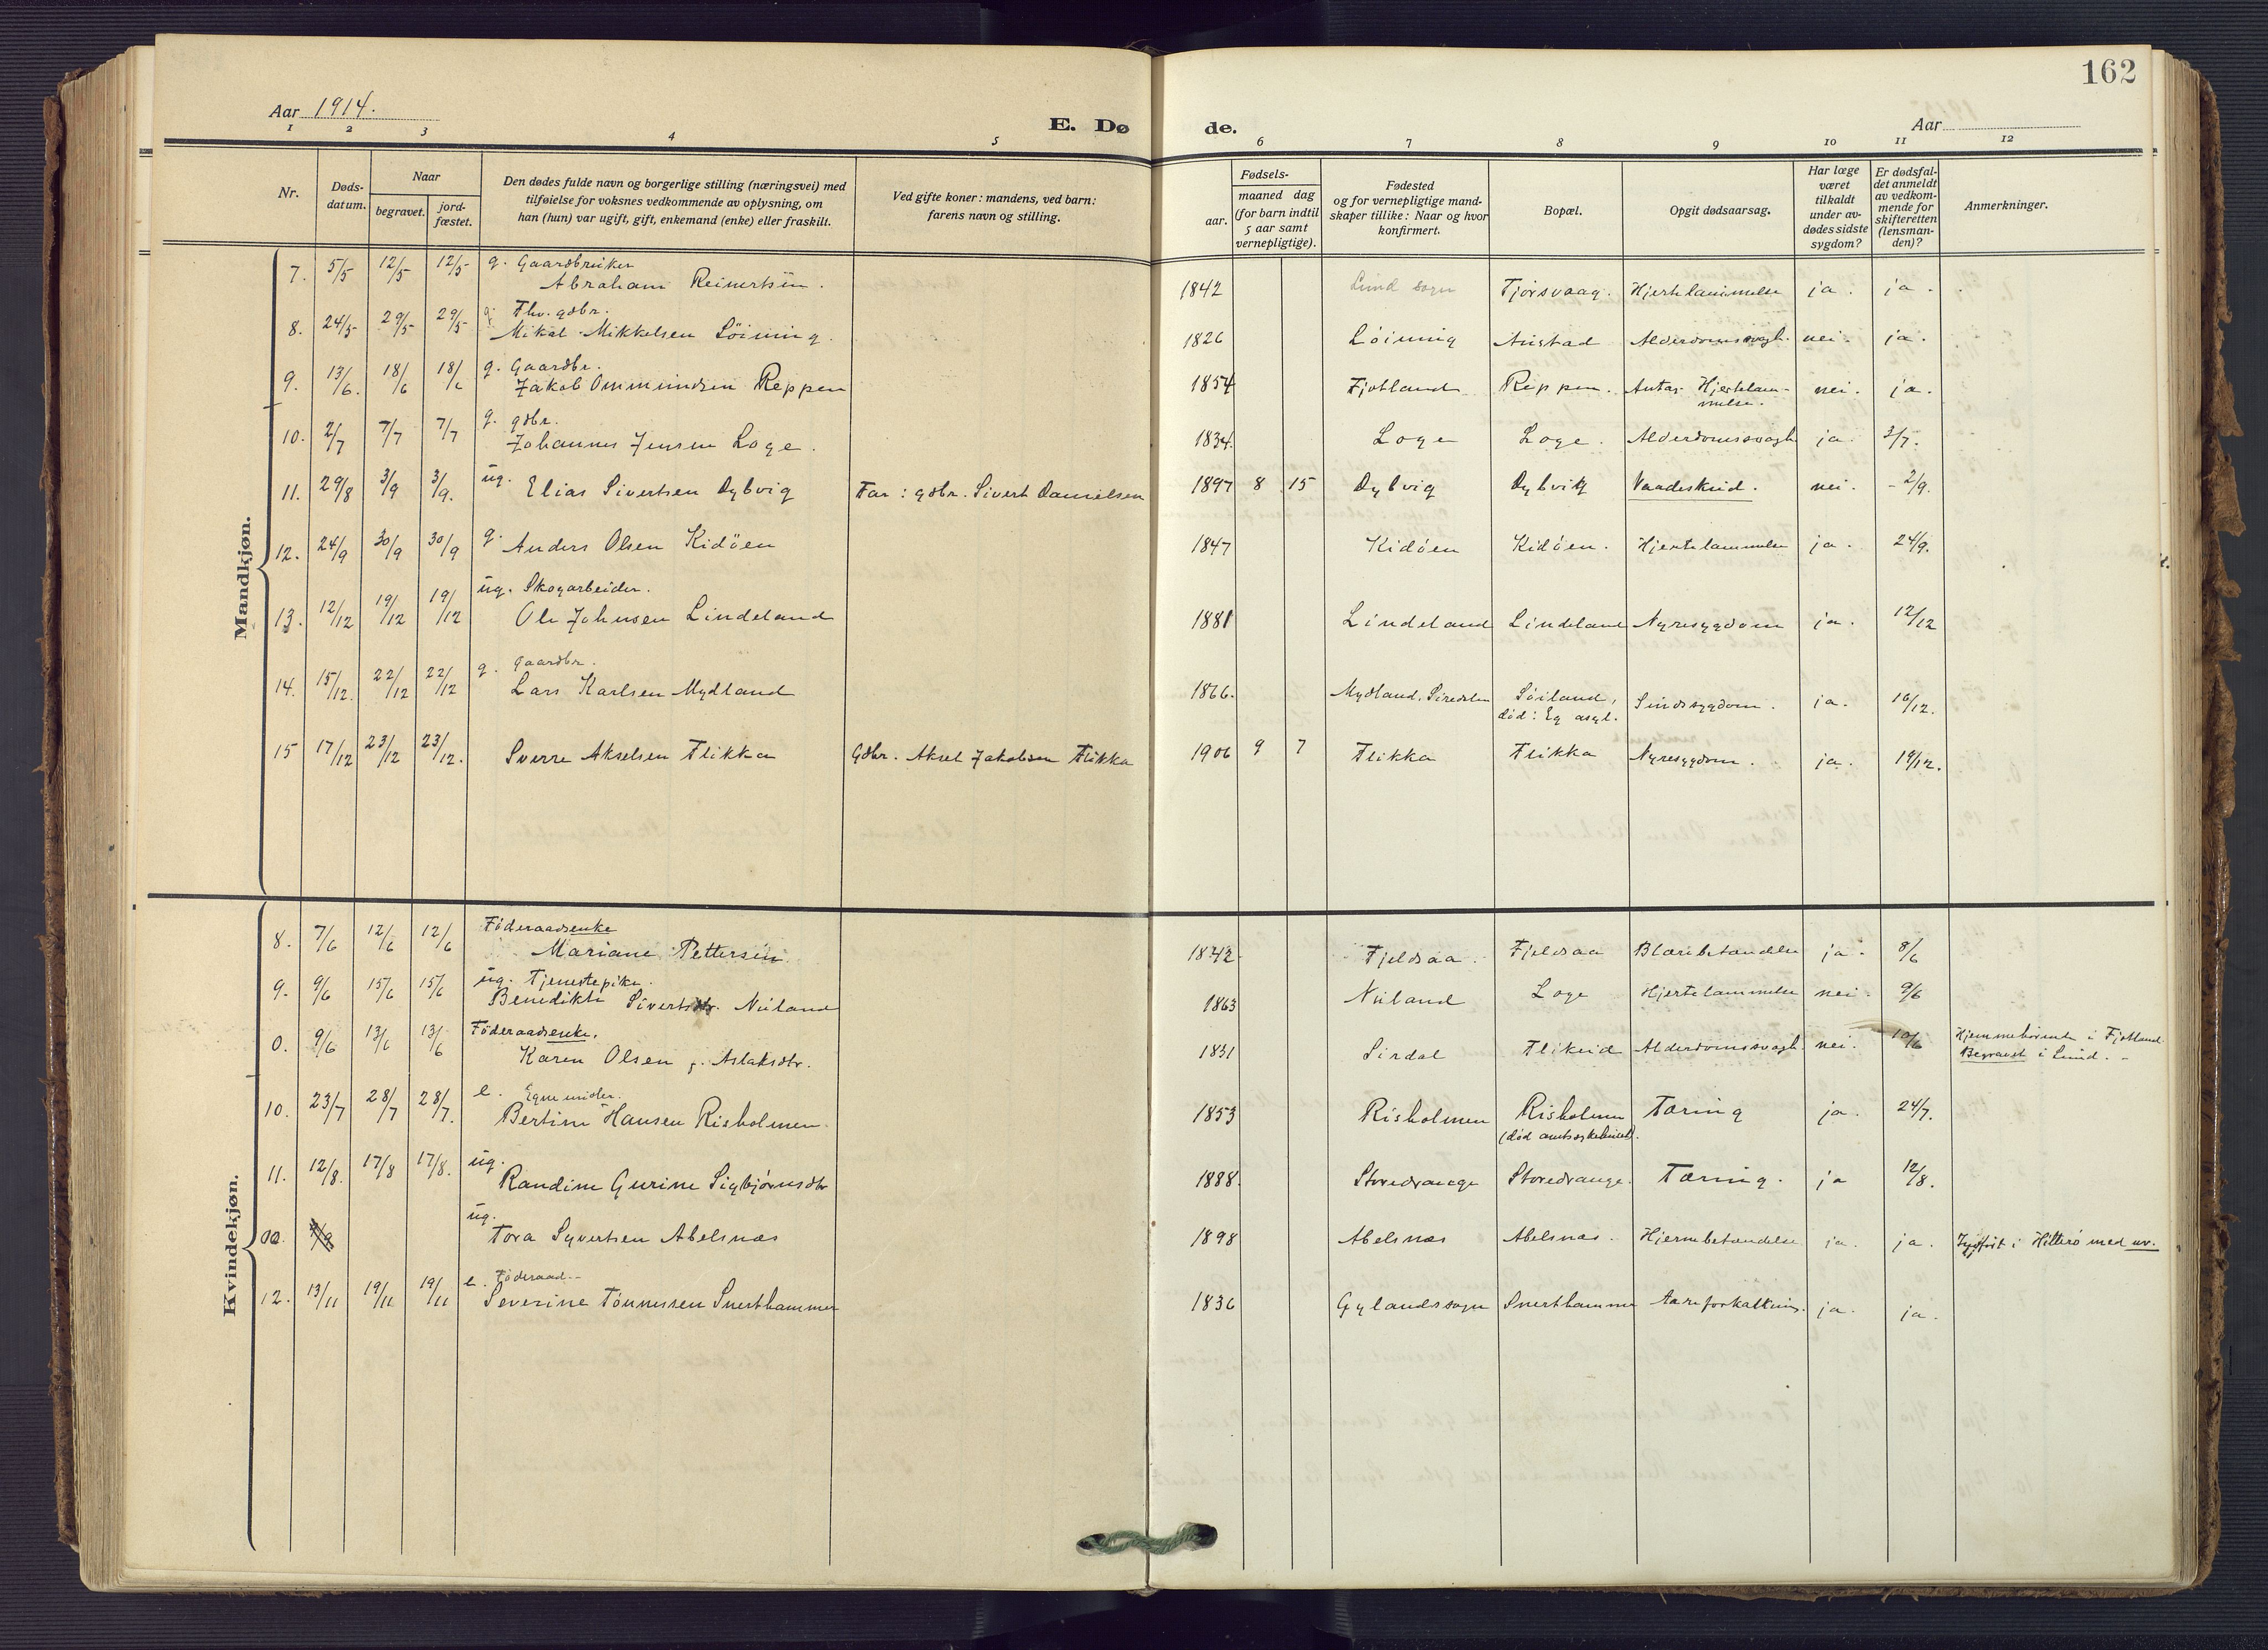 162
Aar 1914.
E. Dø de.
Aar
1 2 3 4 5 6 7 8 9 10 11 12
Nr.
Døds-
datum.
Naar
begravet.
jord-
fæstet.
Den dødes fulde navn og borgerlige stilling (næringsvei) med
tilføielse for voksnes vedkommende av oplysning, om
han (hun) var ugift, gift, enkemand (enke) eller fraskilt.
Ved gifte koner: mandens, ved barn:
farens navn og stilling.
Fødsels-
aar.
maaned dag
(for barn indtil
5 aar samt
vernepligtige).
Fødested
og for vernepligtige mand-
skaper tillike: Naar og hvor
konfirmert.
Bopæl.
Opgit dødsaarsag.
Har læge
været
tilkaldt
under av-
dødes sidste
sygdom?
Er dødsfal-
det anmeldt
av vedkom-
mende for
skifteretten
(lensman-
den)?
Anmerkninger.
Mandkjøn.
7. 5/5 12/5 12/5 g. Gaardbruker
Abraham Reinertsen. 1842 Lund sogn Tjørsvaag. Hjertelammelse ja. ja.
8. 24/5 29/5 29/5 g. Fhv. gdbr.
Mikal Mikkelsen Løining. 1826 Løining Anstad Alderdomssvagh. nei. ja.
9. 13/6. 18/6 18/6 g. Gaardbr.
Jakob Ommundsen Reppen 1854 Fjotland Reppen. Antag. Hjertelam-
melse. nei. ja.
10. 2/7 7/7 7/7 g. gdbr.
Johannes Jensen Loge. 1834. Loge Loge. Alderdomssvagh ja 3/7.
11. 29/8 3/9 3/9. ug. Elias Sivertsen Dybvig Far: gdbr. Sivert Danielsen 1897 8 15 Dybvig Dybvig Vaadeskud. nei. - 2/9.
12. 24/9 30/9 30/9 g. Anders Olsen Kidøen 1847 Kidøen Kidøen. Hjertelammelse ja. 24/9.
13. 12/12 19/12 19/12 ug. Skogarbeider.
Ole Johnsen Lindeland 1881 Lindeland Lindeland Nyresygdom ja. 12/12
14. 15/12. 22/12 22/12 g. gaardbr.
Lars Karlsen Mydland 1866. Mydland. Siredalen Søiland,
død: Eg asyl. Sindssygdom. ja. 16/12.
15 17/12 23/12 23/12. Sverre Akselsen Flikka Gdbr. Aksel Jakobsen Flikka 1906 9 7 Flikka Flikka Nyresygdom. ja. 19/12.
Kvindekjøn.
8. 7/6 12/6 12/6 Føderaadsenke
Mariane Pettersen 1842 Fjeldsaa. Fjeldsaa Blærebetændelse ja. 8/6
9. 9/6 15/6 15/6 ug. Tjenestepike.
Benedikte Sivertsdtr. Nuland 1863 Nuland Loge Hjertelammelse nei. 9/6
0. 9/6 13/6 13/6 Føderaadsenke.
Karen Olsen f. Aslaksdtr. 1831 Sirdal Flikeid Alderdomssvagh. nei. 10/6 Hjemmehørende i Fjotland
Begravet i Lund.
10. 23/7 28/7 28/7. e. Egne midler.
Bertine Hansen Risholmen. 1853 Risholmen Risholmen
(død amtssykehuset). Tæring ja. 24/7.
11. 12/8. 17/8 17/8. ug.
Randine Gurine Sigbjørnsdtr 1888. Storedrange Storedrange. Tæring. ja 12/8.
00. ug.
Tora Syvertsen Abelsnæs 1898 Abelsnæs Abelsnæs. Hjernebetændelse ja. ja. i Hitterø med nr.
12. 13/11 19/11 19/11 e. Føderaad--
Severine Tønnesen Snerthammer 1836 Gylandssogn Snerthammer Aareforkalkning. ja. ja.